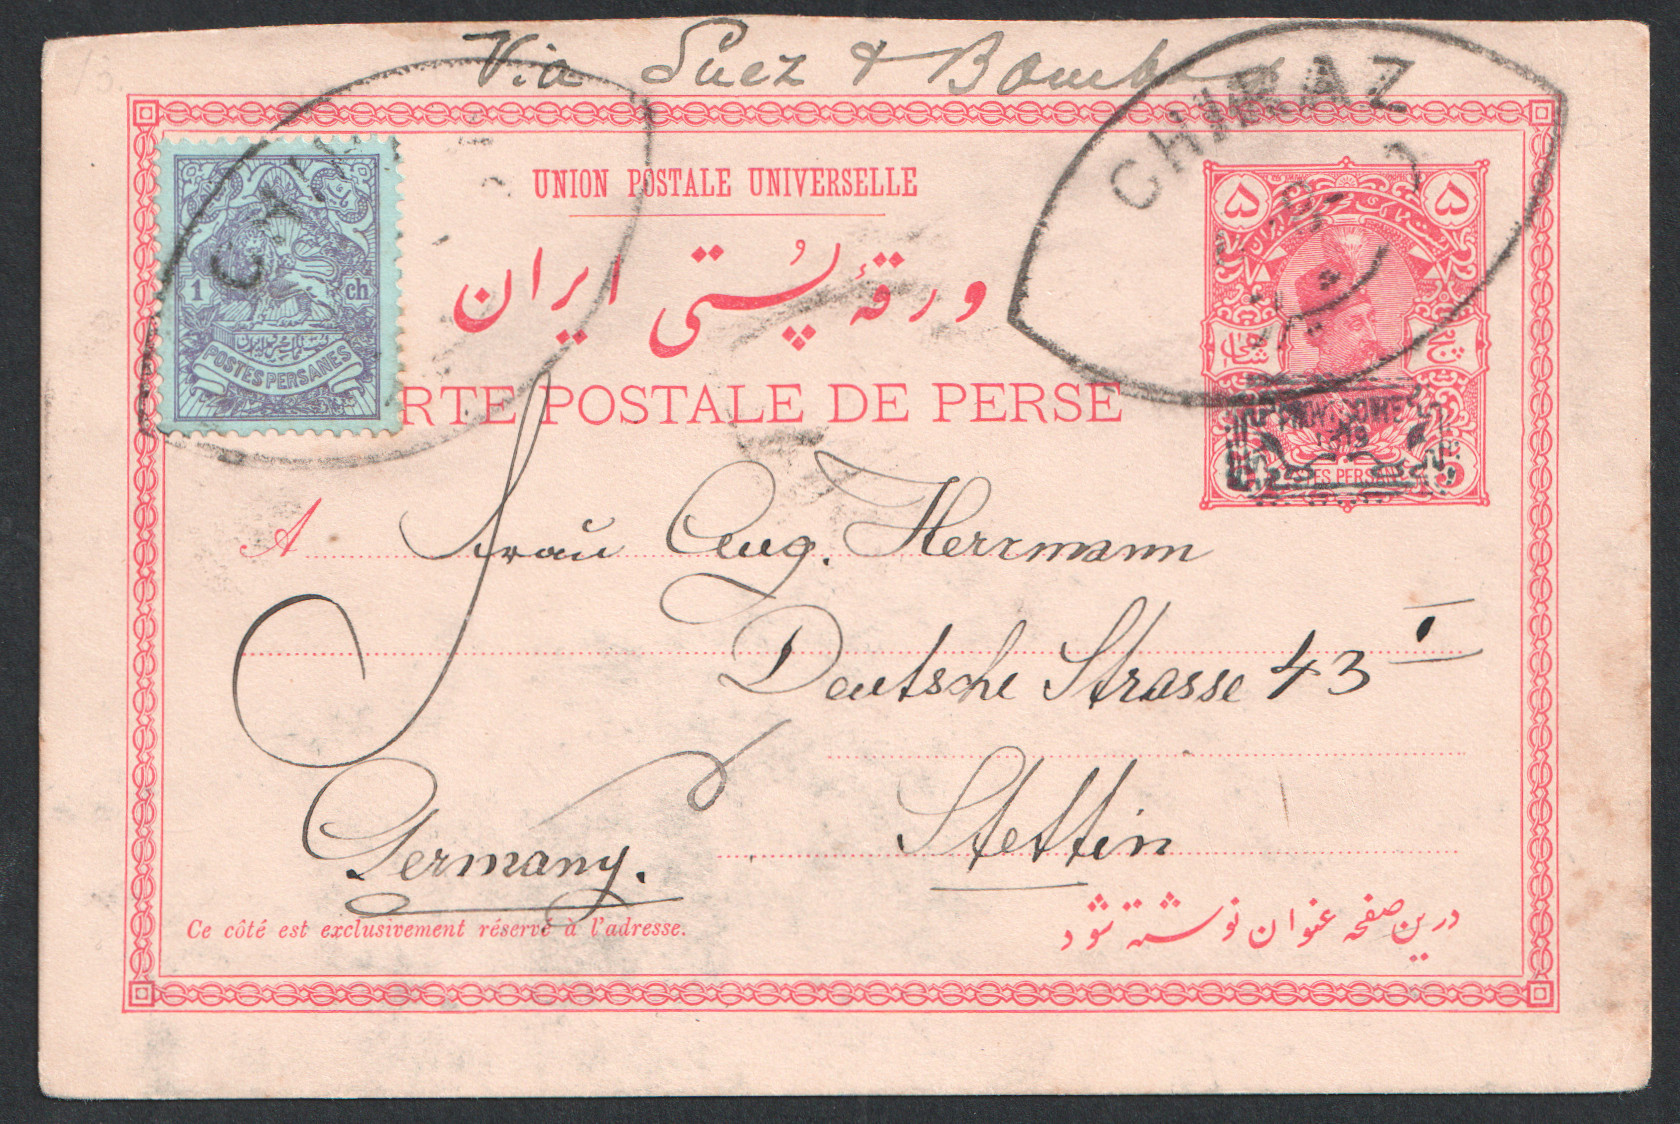 Via Suez & Bombay
CHIRAZ
UNION POSTALE UNIVERSELLE
۵ ۵
ورقهٔ پستی ایران
1 ch
POSTES PERSANES
RTE POSTALE DE PERSE
PROVISOIRE
1319
POSTES PERSANES
5
A Frau Aug. Herrmann
Deutsche Strasse 43 I
Stettin
Germany.
Ce côté est exclusivement réservé à l'adresse.
درین صفحه عنوان نوشته شود